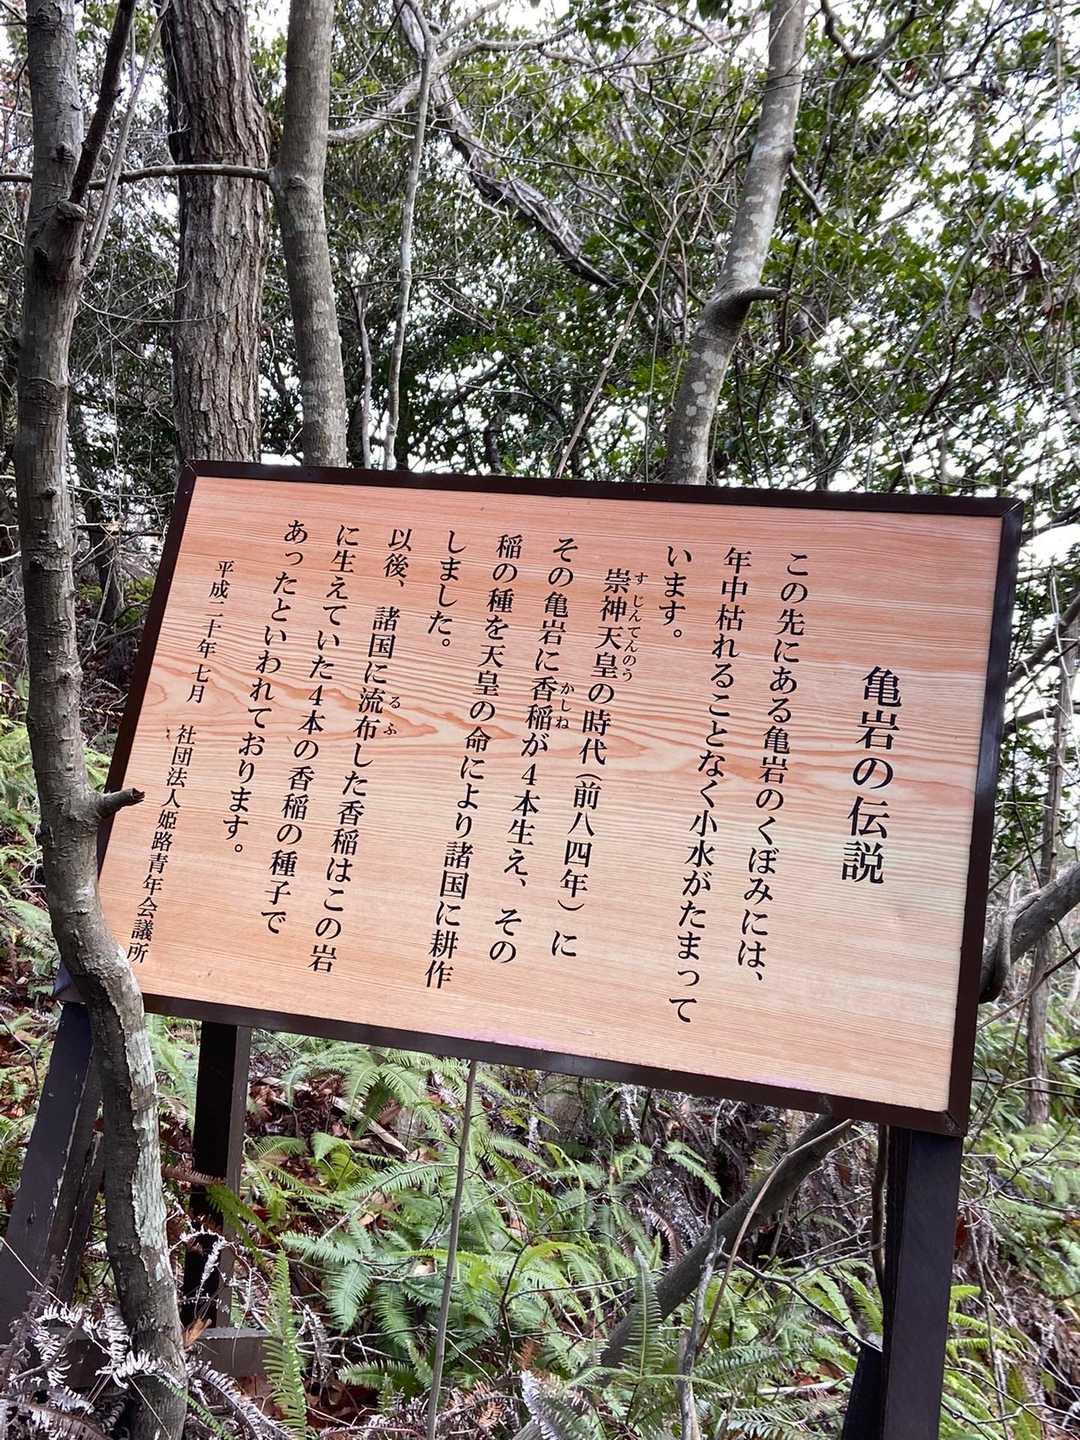 亀岩の伝説
この先にある亀岩のくぼみには、
年中枯れることなく小水がたまって
います。
崇神天皇の時代（前八四年）に
すじんてんのう
その亀岩に香稲が４本生え、その
かしね
稲の種を天皇の命により諸国に耕作
しました。
以後、諸国に流布した香稲はこの岩
るふ
に生えていた４本の香稲の種子で
あったといわれております。
平成二十年七月　社団法人姫路青年会議所